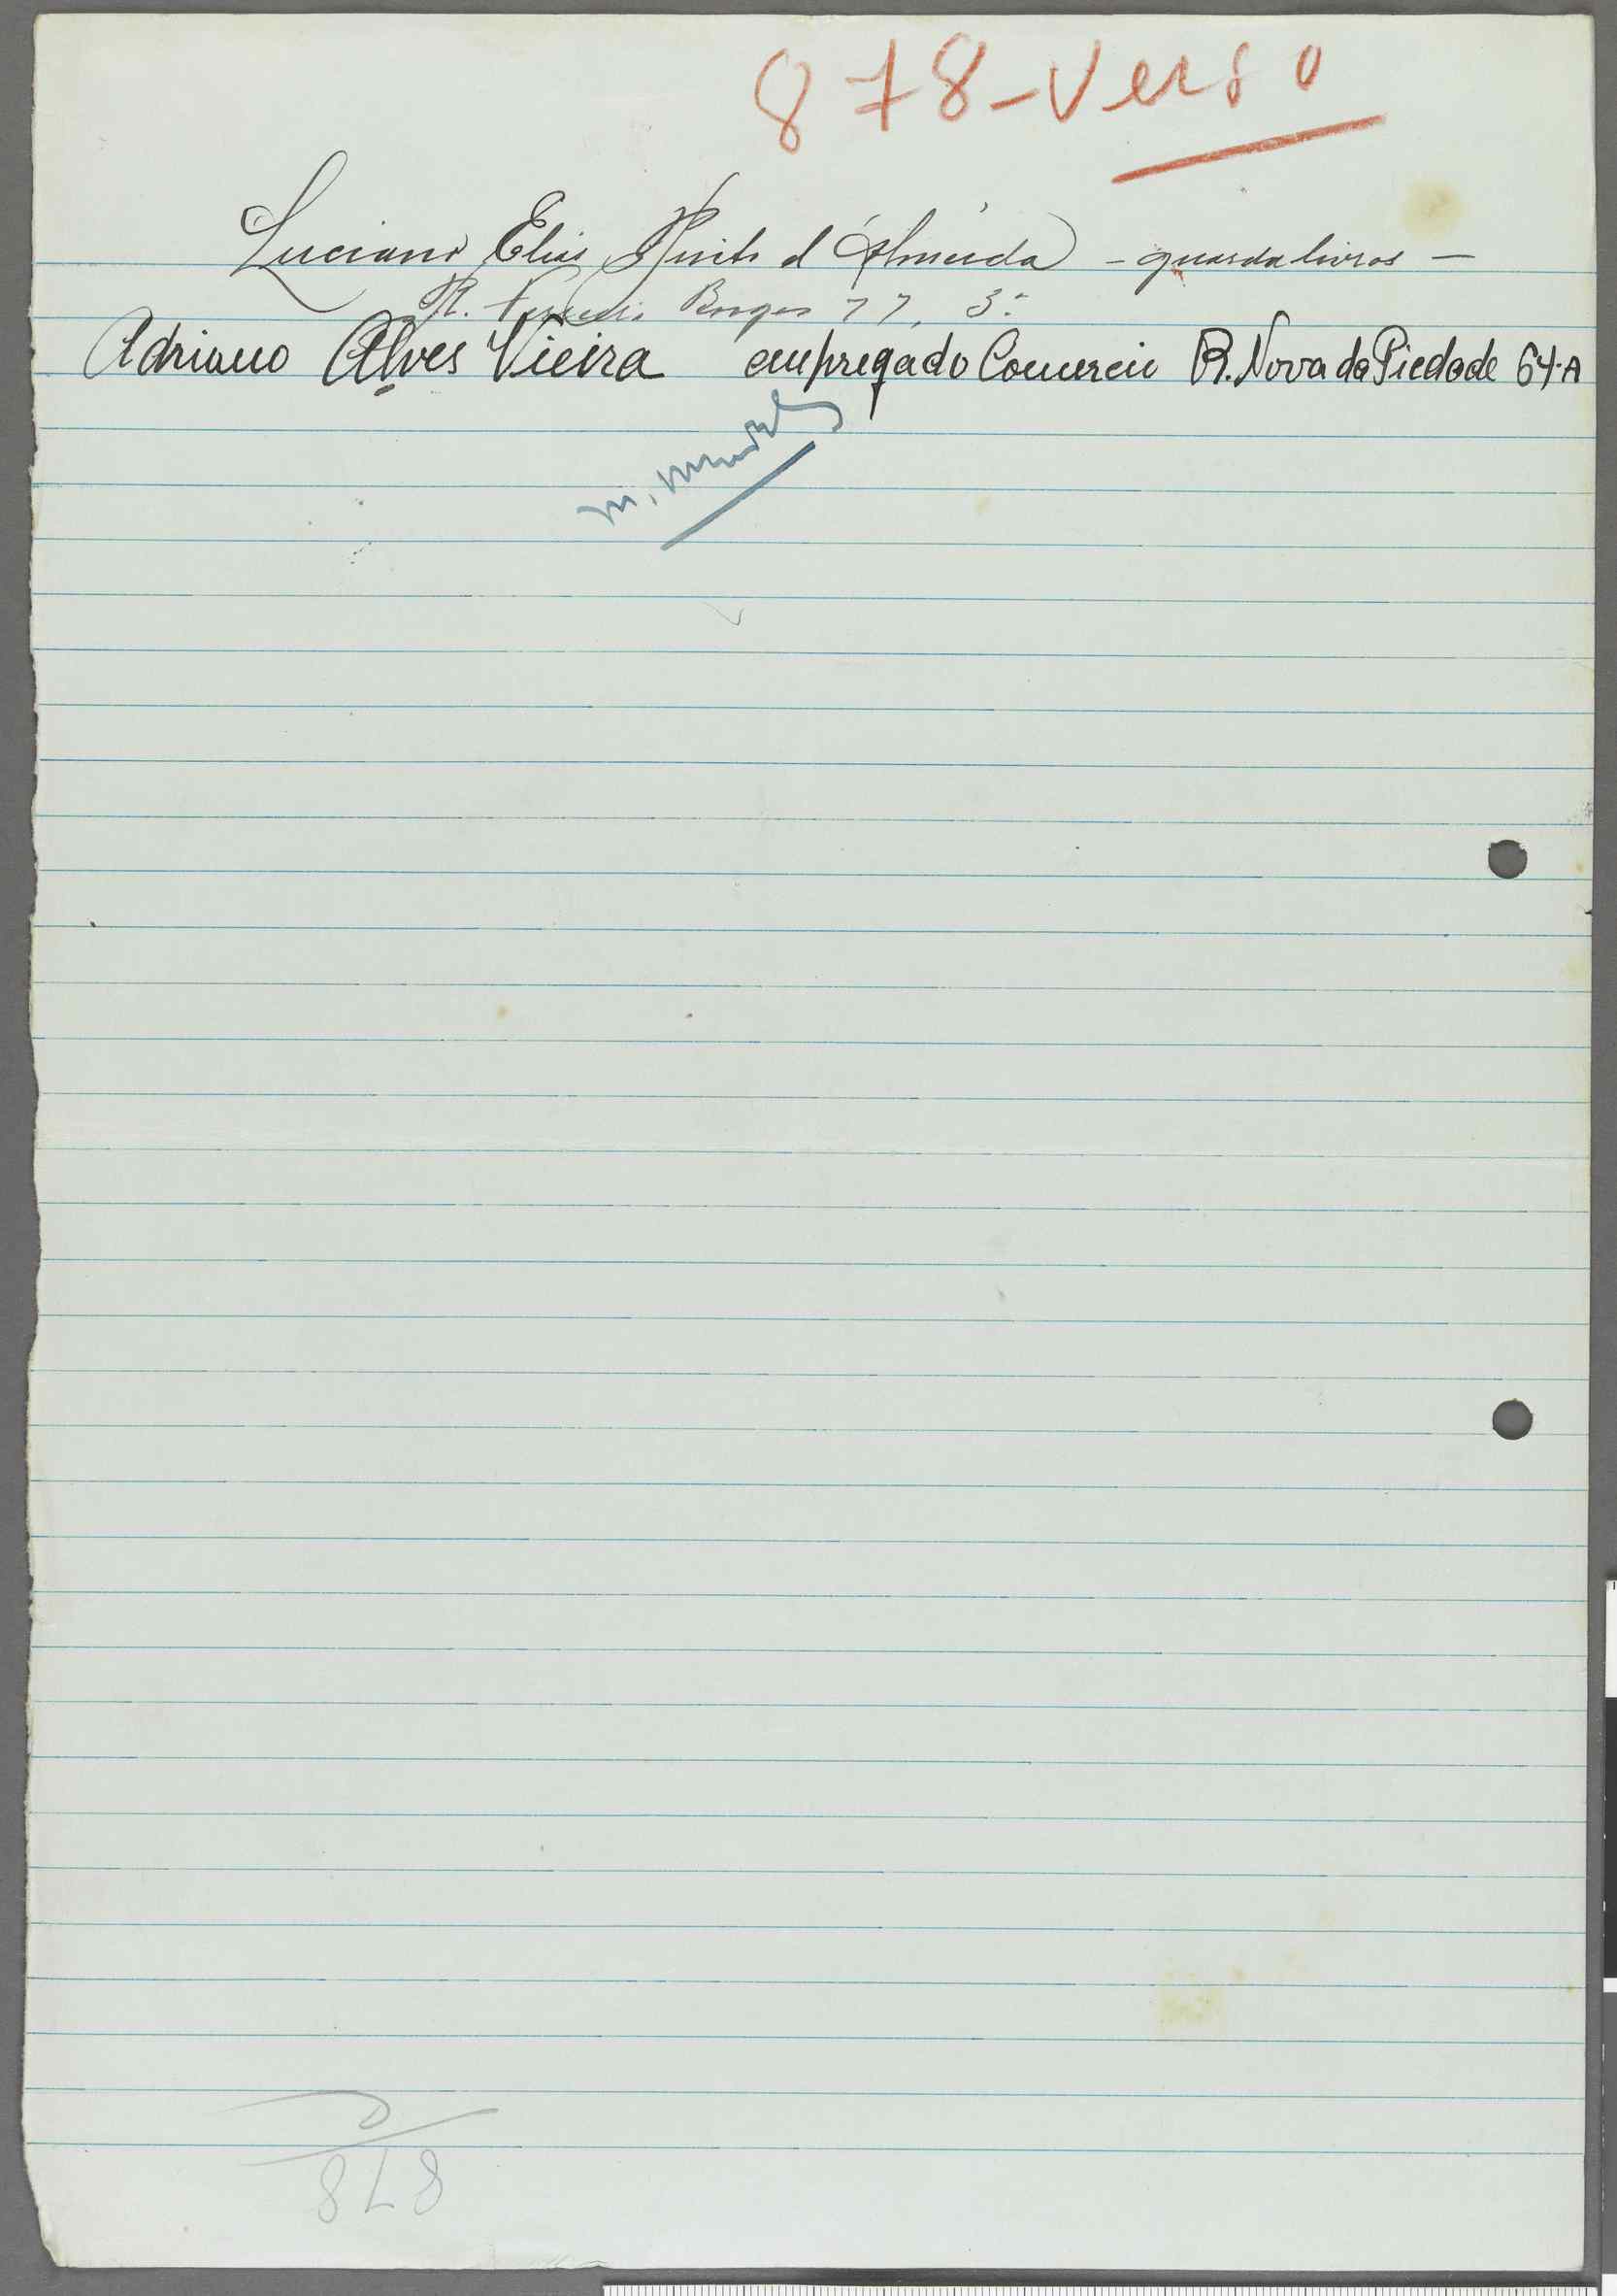 878-Verso
Luciano Elias Pinto d'Almeida - guarda livros -
R. Ferreira Borges 77, 3º
Adriano Alves Vieira empregado Comercio R. Nova da Piedade 64-A
878